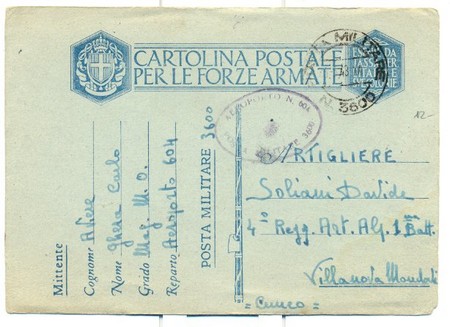 CARTOLINA POSTALE
PER LE FORZE ARMATE
ESENTE DA
TASSA PER
POSTA MILITARE
N. 3600
AEROPORTO N. 604
POSTA MILITARE 3600
12-
Mittente
Cognome Aviere
Nome Ghera Carlo
Grado Mag. M. O.
Reparto Aeroporto 604
POSTA MILITARE 3600
ARTIGLIERE
Soliani Davide
4° Regg. Art. Alp. 1ª Batt.
Villanova Mondovì
= Cuneo =